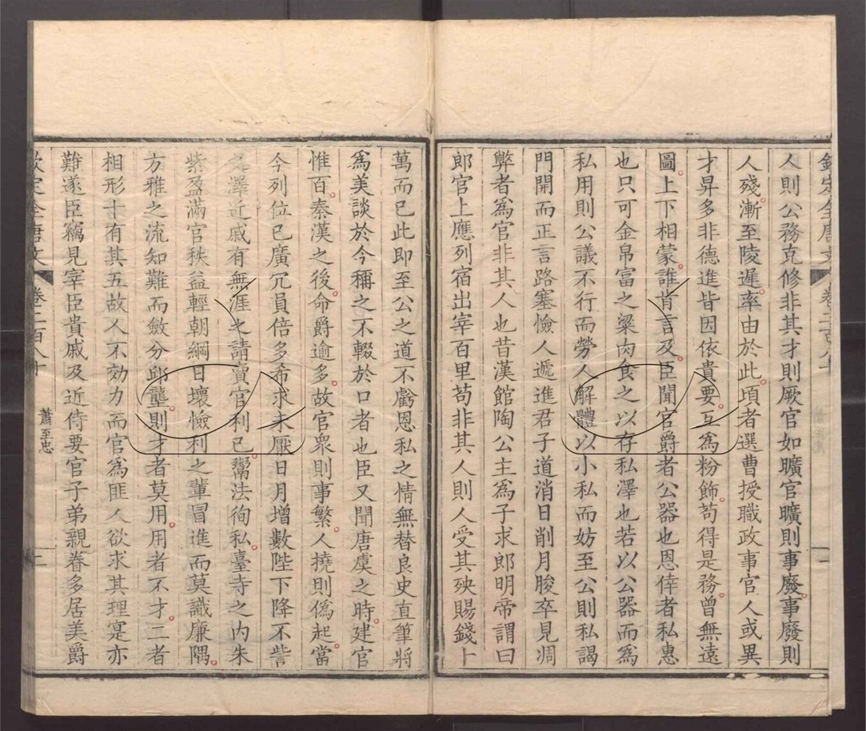 欽定全唐文 卷二百八十
人則公務克修非其才則厥官如曠官曠則事廢事廢則
人殘漸至陵遲率由於此頃者選曹授職政事官人或異
才昇多非德進皆因依貴要互為粉飾苟得是務曾無遠
圖上下相蒙誰肯言及臣聞官爵者公器也恩倖者私惠
也只可金帛富之粱肉食之以存私澤也若以公器而為
私用則公議不行而勞人解體以小私而妨至公則私謁
門開而正言路塞憸人遞進君子道消日削月朘卒見凋
弊者為官非其人也昔漢館陶公主為子求郎明帝謂曰
郎官上應列宿出宰百里苟非其人則人受其殃賜錢十
萬而已此即至公之道不虧恩私之情無替良史直筆將
為美談於今稱之不輟於口者也臣又聞唐虞之時建官
惟百秦漢之後命爵逾多故官衆則事繁人撓則偽起當
今列位已廣冗員倍多希求未厭日月增數陛下降不訾
之澤近戚有無涯之請賣官利已鬻法徇私臺寺之内朱
紫盈滿官秩益輕朝綱日壞憸利之輩冒進而莫識廉隅
方雅之流知難而斂分邱壟則才者莫用用者不才二者
相形十有其五故人不効力而官為匪人欲求其理寔亦
難遂臣竊見宰臣貴戚及近侍要官子弟親眷多居美爵
欽定全唐文 卷二百八十 蕭至忠 二